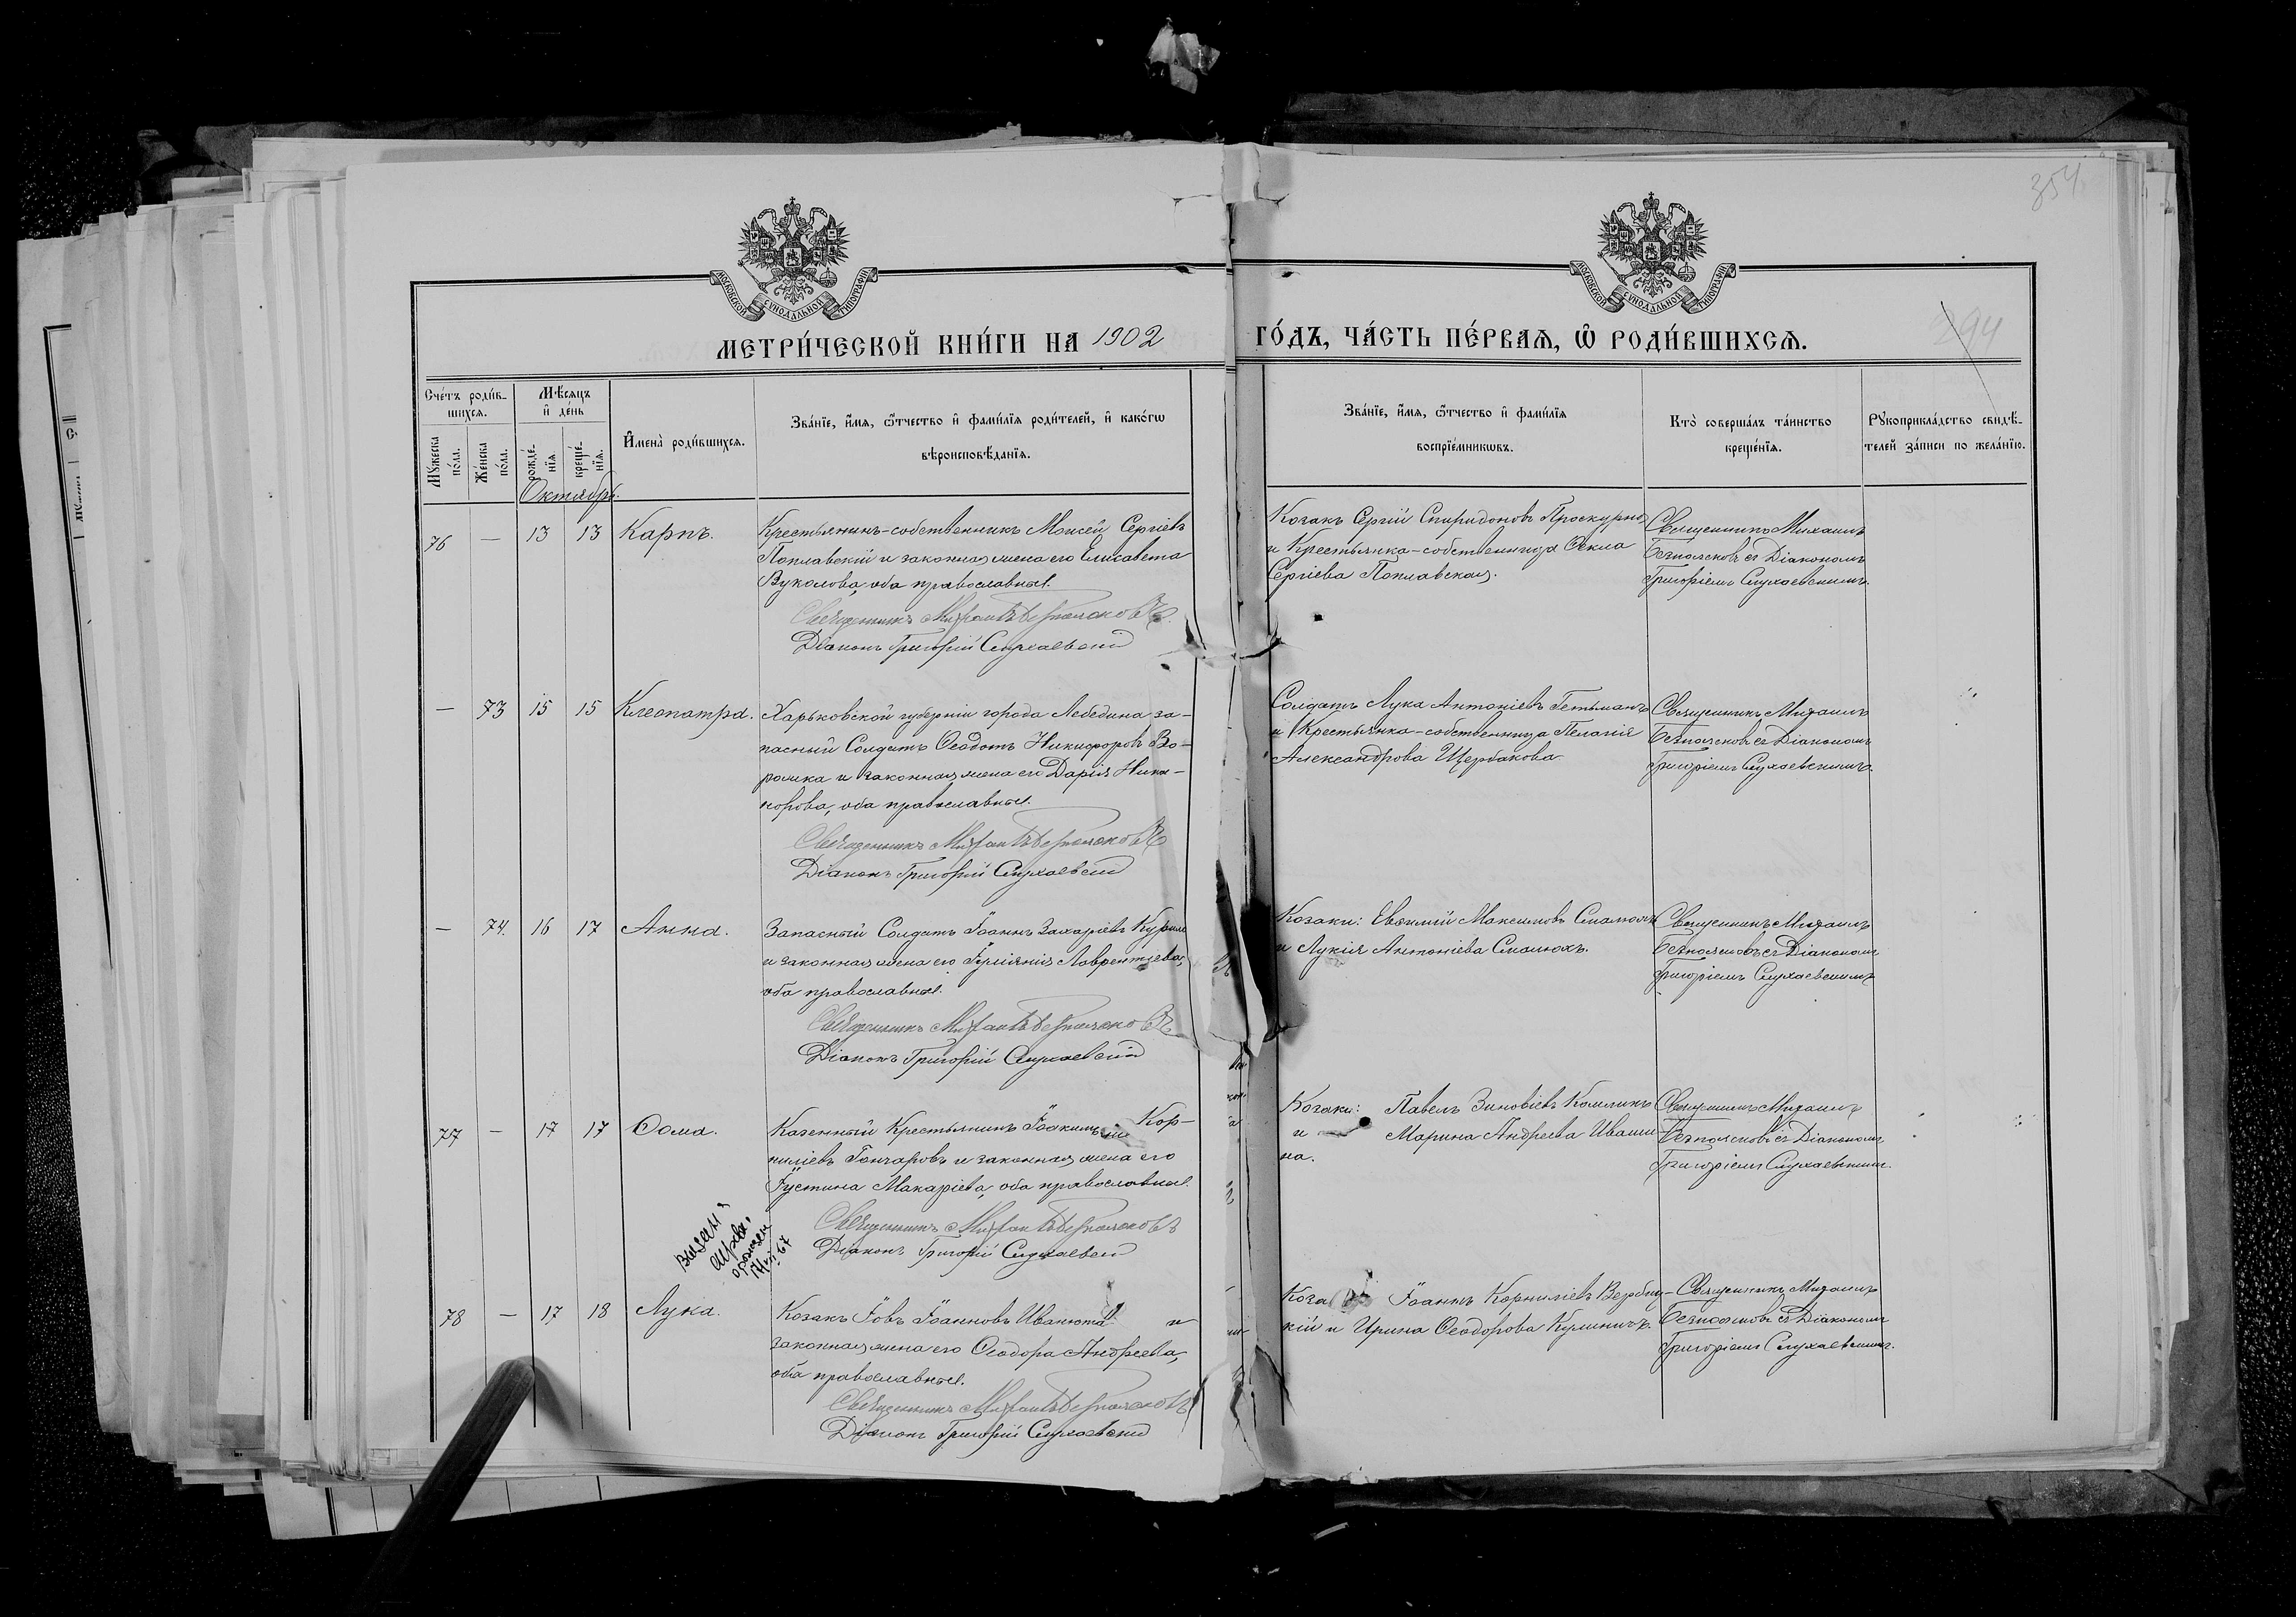 354
394
МОСКОВСКОЙ СУНОДАЛЬНОЙ ТИПОГРАФІИ
МОСКОВСКОЙ СУНОДАЛЬНОЙ ТИПОГРАФІИ
МЕТРИ́ЧЕСКОЙ КНИ́ГИ НА 1902
ГО́ДЪ, ЧА́СТЬ ПЕ́РВАѦ, Ѡ҆ РОДИ́ВШИХСѦ.
Сче́тъ роди́в-
шихсѧ.
Мꙋ́жеска
по́ла.
Же́нска
по́ла.
Мѣ́сѧцъ
и҆ де́нь
рожде́-
нїѧ.
креще́-
нїѧ.
И҆мена̀ роди́вшихсѧ.
Зва́нїе, и҆́мѧ, ѻ҆́тчество и҆ фами́лїѧ роди́телей, и҆ како́гѡ
вѣроисповѣ́данїѧ.
Зва́нїе, и҆́мѧ, ѻ҆́тчество и҆ фами́лїѧ
воспрїе́мникѡвъ.
Кто̀ соверша́лъ та́инство
креще́нїѧ.
Рꙋкоприкла́дство свидѣ́-
телей за́писи по жела́нїю.
Октябрь.
76 — 13 13 Карпъ.
Крестьянинъ-собственникъ Моисей Сергіевъ
Поплавскій и законная жена его Елисавета
Вуколова, оба православные.
Священникъ Михаилъ Безпоясковъ
Діаконъ Григорій Слухаевскій
Козакъ Сергій Спиридоновъ Проскурно
и Крестьянка-собственница Ѳекла
Сергіева Поплавская.
Священникъ Михаилъ
Безпоясковъ съ Діакономъ
Григоріемъ Слухаевскимъ.
— 73 15 15 Клеопатра.
Харьковской губерніи города Лебедина за-
пасный Солдатъ Ѳеодотъ Никифоровъ Во-
рожка и законная жена его Дарія Ника-
норова, оба православные.
Священникъ Михаилъ Безпоясковъ
Діаконъ Григорій Слухаевскій
Солдатъ Лука Антоніевъ Гетьманъ
и Крестьянка-собственница Пелагія
Александрова Щербакова
Священникъ Михаилъ
Безпоясковъ съ Діакономъ
Григоріемъ Слухаевскимъ.
— 74. 16 17 Анна.
Запасный Солдатъ Іоаннъ Захаріевъ
и законная жена его Іуліанія Лаврентіева,
оба православные.
Священникъ Михаилъ Безпоясковъ
Діаконъ Григорій Слухаевскій
Козаки: Евѳимій Максимовъ Смалюхъ
и Лукія Антоніева Смалюхъ.
Священникъ Михаилъ
Безпоясковъ съ Діакономъ
Григоріемъ Слухаевскимъ
77 — 17 17 Ѳома.
Казенный Крестьянинъ Іоакимъ Кор-
ниліевъ Гончаровъ и законная жена его
Іустина Макаріева, оба православные.
Священникъ Михаилъ Безпоясковъ
Діаконъ Григорій Слухаевскій
Козаки: Павелъ Зиновіевъ
и Марина Андреева Иваши-
на.
Священникъ Михаилъ
Безпоясковъ съ Діакономъ
Григоріемъ Слухаевскимъ.
78 — 17 18 Лука.
Козакъ Іовъ Іоанновъ Иванюта и
законная жена его Ѳеодора Андреева,
оба православные.
Священникъ Михаилъ Безпоясковъ
Діаконъ Григорій Слухаевскій
Іоаннъ Корниліевъ Вербиц-
кій и Ирина Ѳеодорова Кулиничъ.
Священникъ Михаилъ
Безпоясковъ съ Діакономъ
Григоріемъ Слухаевскимъ.